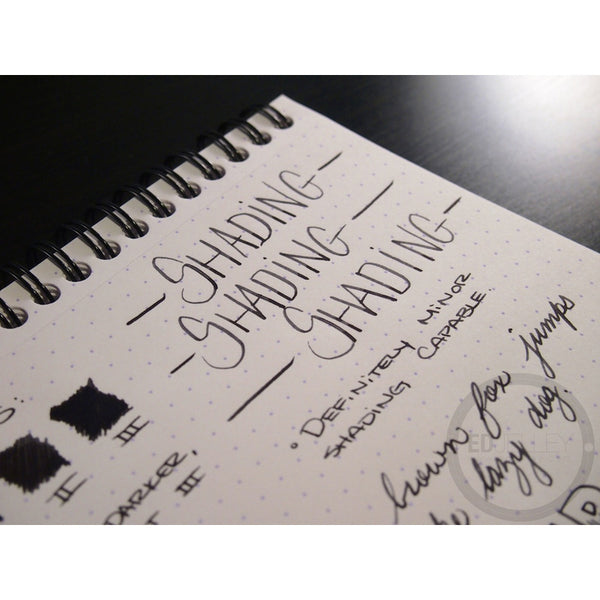 - SHADING -
- SHADING -
- SHADING -
• DEFINITELY MINOR
SHADING CAPABLE.
brown fox jumps
lazy dog.
III
II
DARKER,
III
ED JELLEY